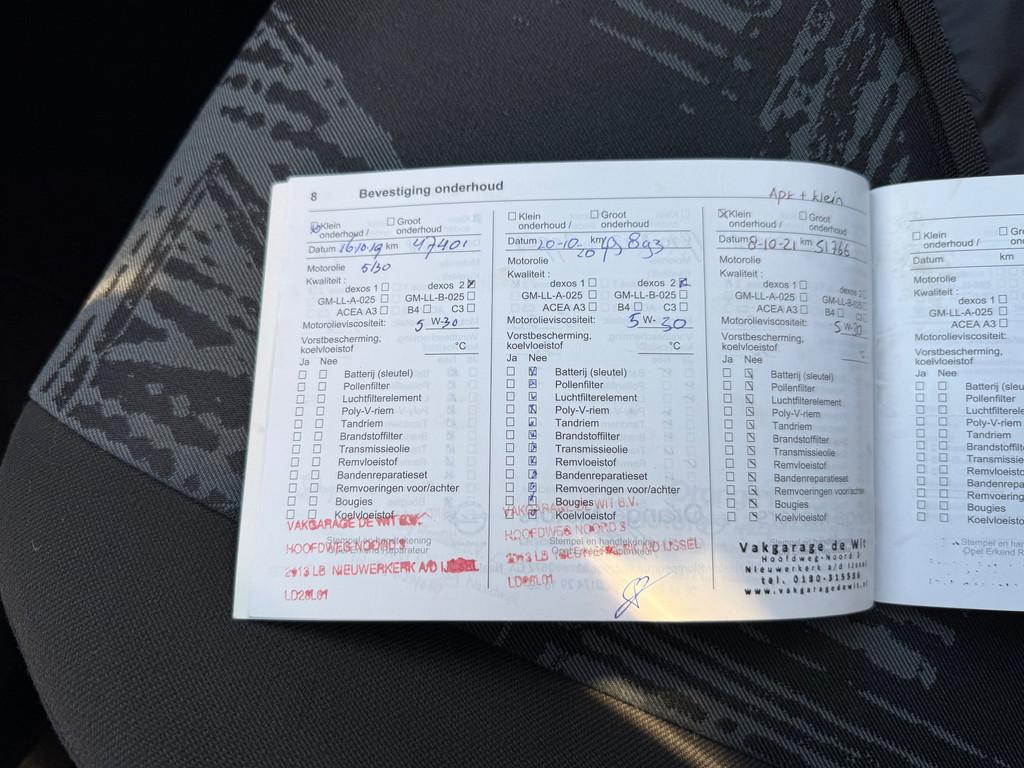 8 Bevestiging onderhoud
Apk + klein
Klein onderhoud / Groot onderhoud
Datum 16-10-19 km 47401
Motorolie 5/30
Kwaliteit :
dexos 1 dexos 2
GM-LL-A-025 GM-LL-B-025
ACEA A3 B4 C3
Motorolieviscositeit: 5 W-30
Vorstbescherming,
koelvloeistof °C
Ja Nee
Batterij (sleutel)
Pollenfilter
Luchtfilterelement
Poly-V-riem
Tandriem
Brandstoffilter
Transmissieolie
Remvloeistof
Bandenreparatieset
Remvoeringen voor/achter
Bougies
Koelvloeistof
VAKGARAGE DE WIT B.V.
HOOFDWEG NOORD 3
2913 LB NIEUWERKERK A/D IJSSEL
LD28L01
Klein onderhoud / Groot onderhoud
Datum 20-10-20 km
Motorolie
Kwaliteit :
dexos 1 dexos 2
GM-LL-A-025 GM-LL-B-025
ACEA A3 B4 C3
Motorolieviscositeit: 5 W-30
Vorstbescherming,
koelvloeistof °C
Ja Nee
Batterij (sleutel)
Pollenfilter
Luchtfilterelement
Poly-V-riem
Tandriem
Brandstoffilter
Transmissieolie
Remvloeistof
Bandenreparatieset
Remvoeringen voor/achter
Bougies
Koelvloeistof
VAKGARAGE DE WIT B.V.
HOOFDWEG NOORD 3
2913 LB NIEUWERKERK A/D IJSSEL
LD28L01
Klein onderhoud / Groot onderhoud
Datum 8-10-21 km 51766
Motorolie
Kwaliteit :
dexos 1 dexos 2
GM-LL-A-025 GM-LL-B-025
ACEA A3 B4 C3
Motorolieviscositeit: 5 W-30
Vorstbescherming,
koelvloeistof °C
Ja Nee
Batterij (sleutel)
Pollenfilter
Luchtfilterelement
Poly-V-riem
Tandriem
Brandstoffilter
Transmissieolie
Remvloeistof
Bandenreparatieset
Remvoeringen voor/achter
Bougies
Koelvloeistof
Vakgarage de Wit
Hoofdweg-Noord 3
Nieuwerkerk a/d IJssel
tel. 0180-315536
www.vakgaragedewit.nl
Klein onderhoud /
Datum km
Motorolie
Kwaliteit :
dexos 1
GM-LL-A-025
ACEA A3
Motorolieviscositeit:
Vorstbescherming,
koelvloeistof
Ja Nee
Batterij (sleutel)
Pollenfilter
Luchtfilterele
Poly-V-riem
Tandriem
Brandstoffilt
Transmissie
Remvloeisto
Bandenrepa
Remvoering
Bougies
Koelvloeisto
Stempel en hand
Opel Erkend R